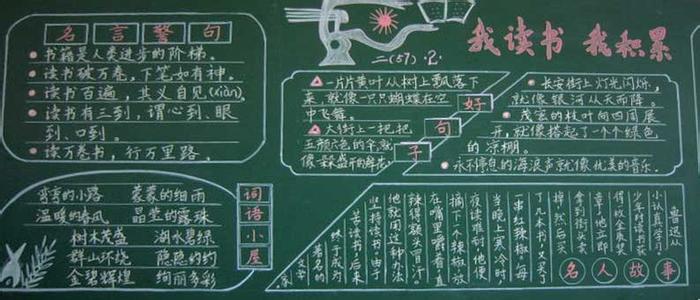 名言警句
书籍是人类进步的阶梯。
读书破万卷，下笔如有神。
读书百遍，其义自见(xiàn)。
读书有三到，谓心到、眼
到、口到。
读万卷书，行万里路。
二（57）.2.
我读书 我积累
一片片黄叶从树上飘落下
来，就像一只只蝴蝶在空
中飞舞。
大街上一把把
五颜六色的伞，就
像一朵朵盛开的鲜花。
好
句
子
长安街上灯光闪烁，
就像银河从天而降。
茂密的枝叶向四周展
开，就像搭起了一个个绿色
的凉棚。
永不停息的海浪声就像优美的音乐。
弯弯的小路 蒙蒙的细雨
温暖的春风 晶莹的露珠
树木茂盛 湖水碧绿
群山环绕 隐隐约约
金碧辉煌 绚丽多彩
词语小屋
鲁迅从
小认真学习。
少年时读书
得了奖
章，他立即
拿到街上卖
掉，然后买
了几本书，又买了
一串红辣椒。每
当晚上寒冷时，
夜读难耐，他便
摘下一个辣椒，放
在嘴里嚼着，直
辣得额头冒汗。
他就用这种办法
坚持读书。由于
苦读书，后来
终于成为
著名的
文学
家。
名人故事